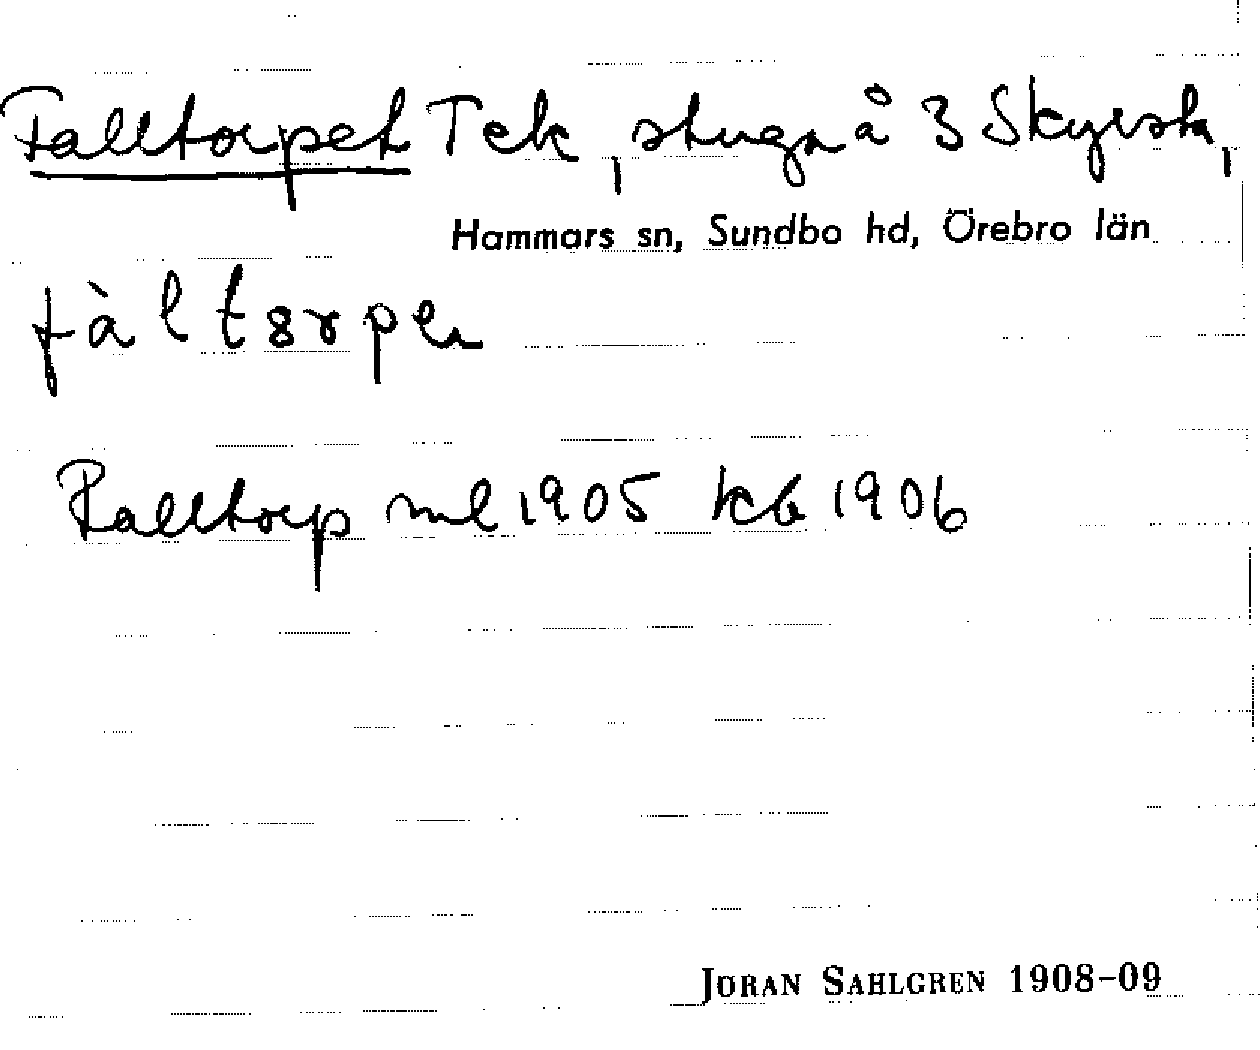 Falltorpet Tek, stuga å 3 Skyrsta,
Hammars sn, Sundbo hd, Örebro län
fàltorpe
Falltorp ml 1905 kb 1906
JÖRAN SAHLGREN 1908-09